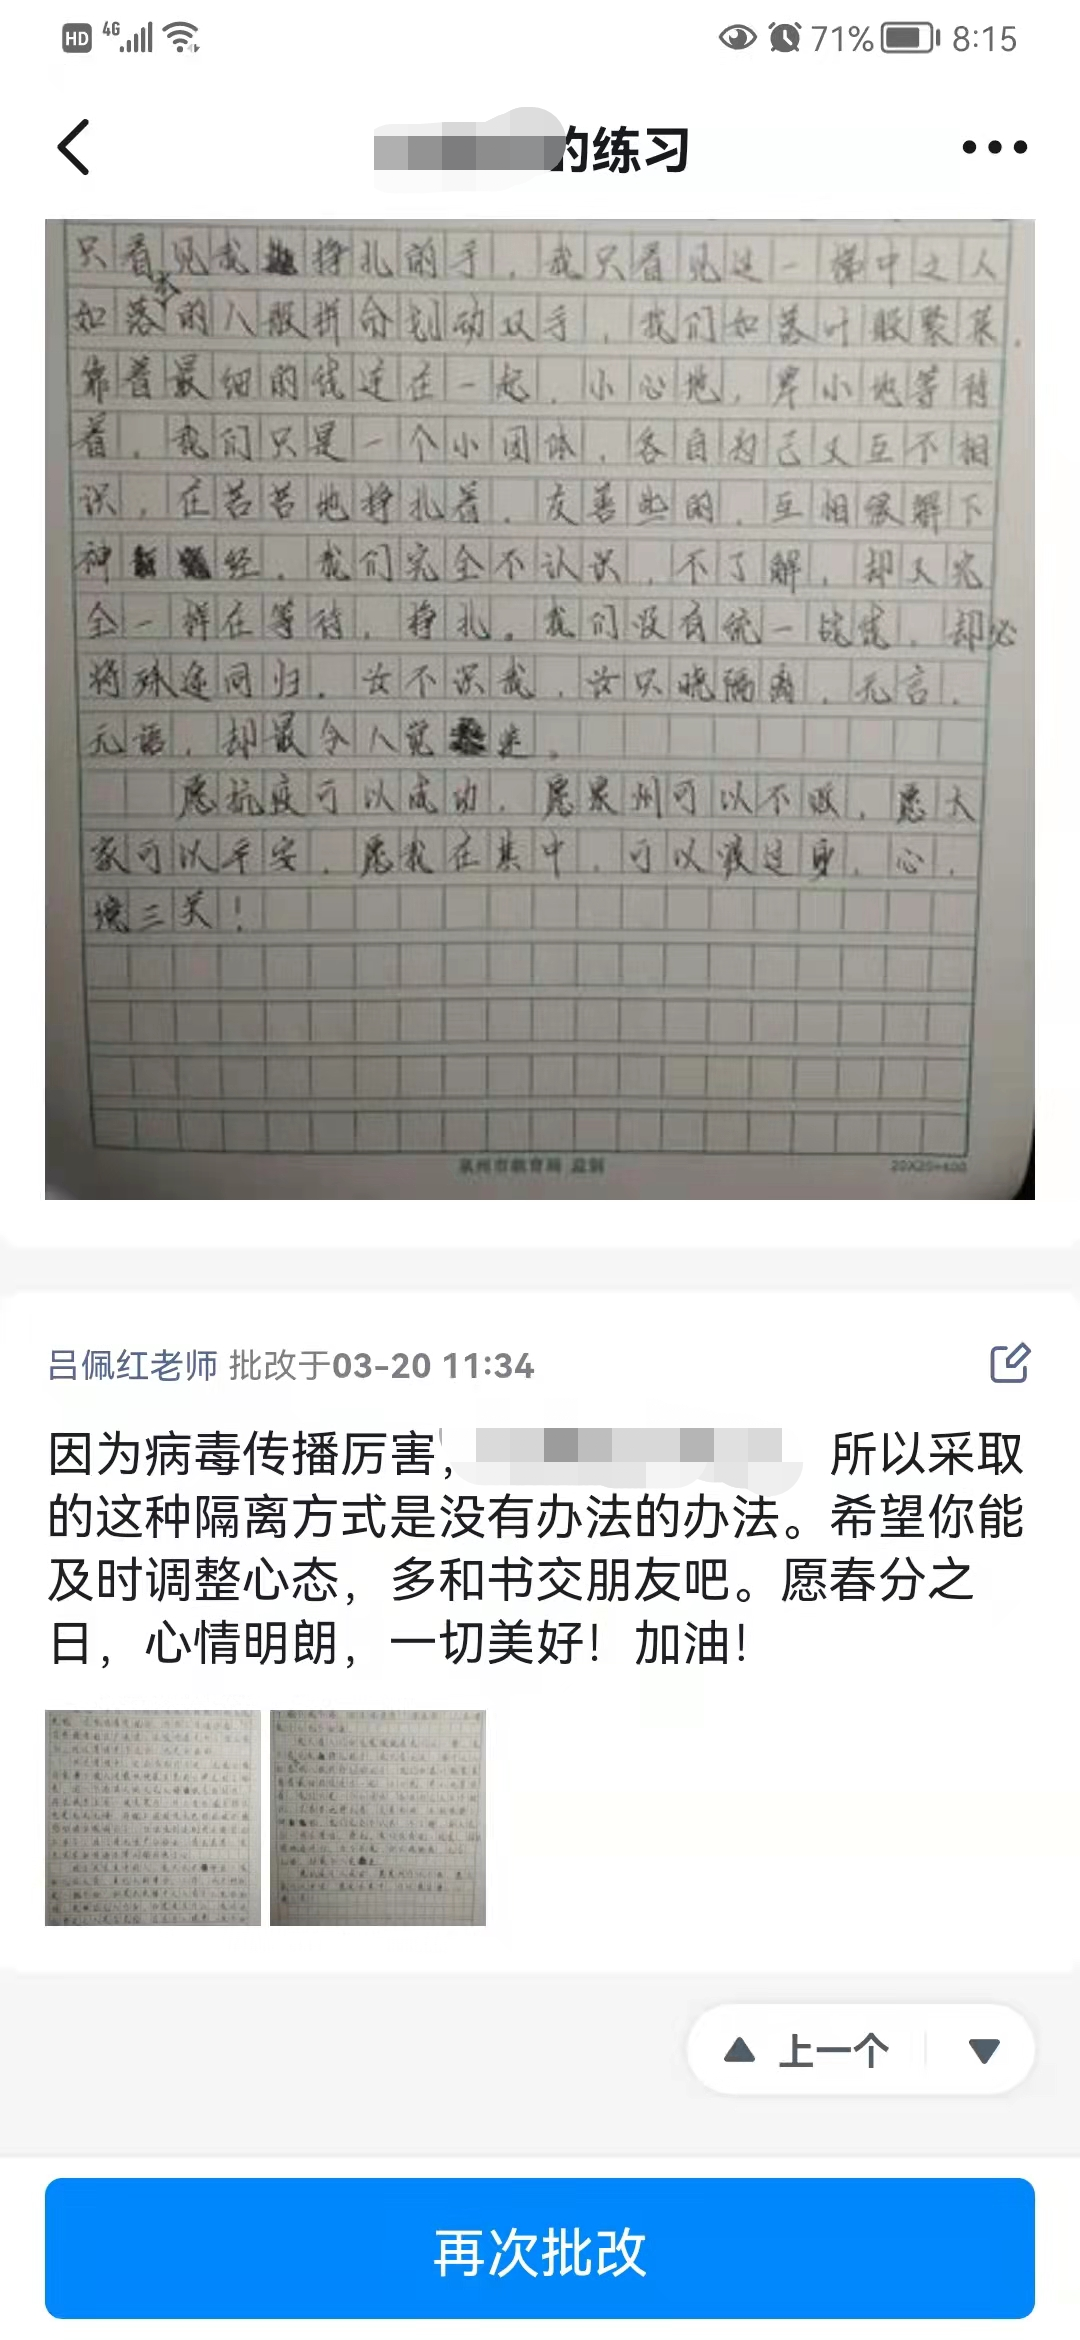 HD 4G 71% 8:15
的练习
只看见我挣扎的手，我只看见这一梯中之人
如落水的人般拼命划动双手，我们如落叶般聚集，
靠着最细的线连在一起，小心地，卑小地等待
着，我们只是一个小团体，各自为己又互不相
识，在苦苦地挣扎着，友善些的，互相缓解下
神经，我们完全不认识，不了解，却又完
全一样在等待，挣扎。我们没有统一战线，却必
将殊途同归，汝不识我，汝只晓隔离，无言，
无语，却最令人觉迷。
愿抗疫可以成功，愿泉州可以不败，愿大
家可以平安，愿我在其中，可以渡过身，心，
境三关！
泉州市教育局 监制 20X20=400
吕佩红老师 批改于03-20 11:34
因为病毒传播厉害， 所以采取
的这种隔离方式是没有办法的办法。希望你能
及时调整心态，多和书交朋友吧。愿春分之
日，心情明朗，一切美好！加油！
上一个
再次批改